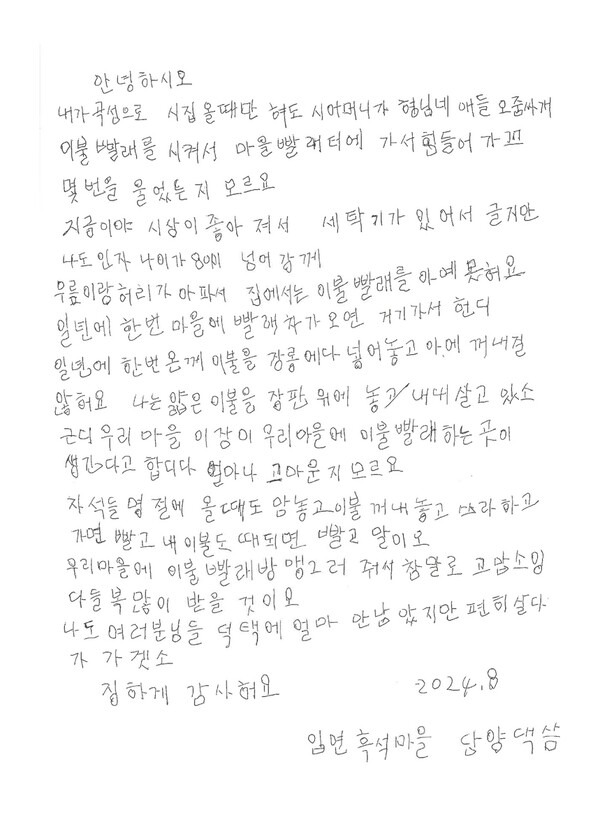 안녕하시오
내가 곡성으로 시집 올때만 혀도 시어머니가 형님네 애들 오줌싸개
이불 빨래를 시켜서 마을 빨래터에 가서 힘들어 가꼬
몇번을 울었든지 모르요
지금이야 시상이 좋아 져서 세탁기가 있어서 글지만
나도 인자 나이가 80이 넘어 강께
무릎이랑 허리가 아파서 집에서는 이불빨래를 아예 못혀요
일년에 한번 마을에 빨래차가 오면 거기가서 헌디
일년에 한번 온께 이불을 장롱에다 넣어놓고 아에 꺼내질
않혀요 나는 얇은 이불을 장판 위에 놓고 내내 살고 있소
근디 우리 마을 이장이 우리마을에 이불빨래 하는 곳이
생긴다고 합디다 얼마나 고마운지 모르요
자석들 명절에 올때도 암놓고 이불 꺼내 놓고 쓰라하고
가면 빨고 내 이불도 때되면 빨고 말이오
우리마을에 이불 빨래방 맹그러 줘서 참말로 고맙소잉
다들 복 많이 받을 것이오
나도 여러분님들 덕택에 얼마 안남았지만 편히 살다
가 가겟소
집하게 감사혀요 2024.8
입면 흑석마을 담양댁 씀